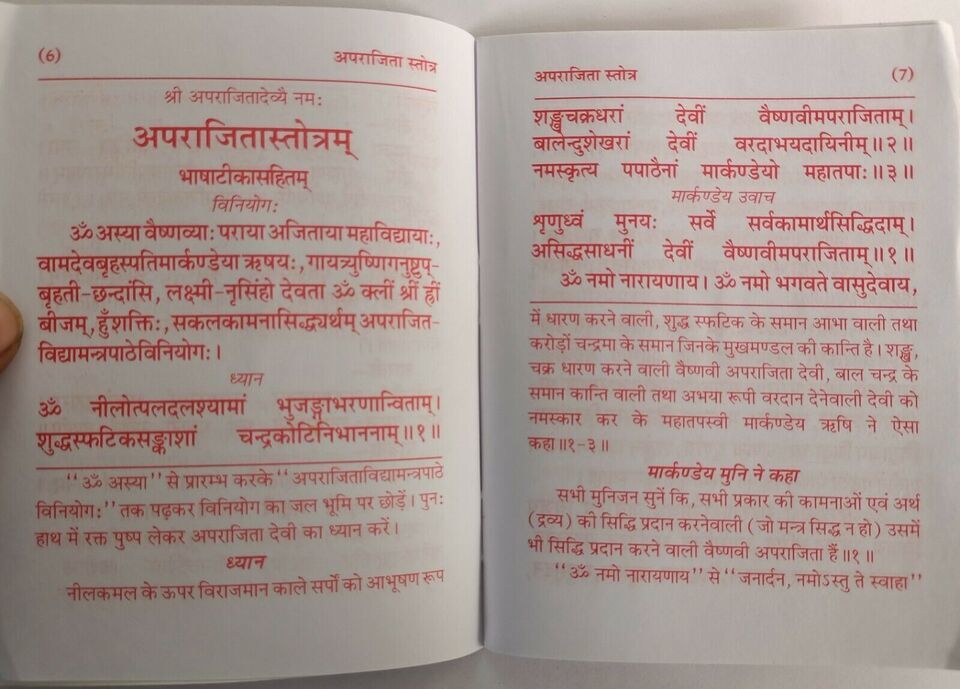 (6) अपराजिता स्तोत्र
श्री अपराजितादेव्यै नमः
अपराजितास्तोत्रम्
भाषाटीकासहितम्
विनियोगः
ॐ अस्या वैष्णव्याः पराया अजिताया महाविद्यायाः,
वामदेवबृहस्पतिमार्कण्डेया ऋषयः, गायत्र्युष्णिगनुष्टुप्-
बृहती-छन्दांसि, लक्ष्मी-नृसिंहो देवता ॐ क्लीं श्रीं ह्रीं
बीजम्, हुँ शक्तिः, सकलकामनासिद्ध्यर्थम् अपराजित-
विद्यामन्त्रपाठेविनियोगः।
ध्यान
ॐ नीलोत्पलदलश्यामां भुजङ्गाभरणान्विताम्।
शुद्धस्फटिकसङ्काशां चन्द्रकोटिनिभाननाम्॥१॥
"ॐ अस्या" से प्रारम्भ करके "अपराजिताविद्यामन्त्रपाठे
विनियोगः" तक पढ़कर विनियोग का जल भूमि पर छोड़ें। पुनः
हाथ में रक्त पुष्प लेकर अपराजिता देवी का ध्यान करें।
ध्यान
नीलकमल के ऊपर विराजमान काले सर्पों को आभूषण रूप
अपराजिता स्तोत्र (7)
शङ्खचक्रधरां देवीं वैष्णवीमपराजिताम्।
बालेन्दुशेखरां देवीं वरदाभयदायिनीम्॥२॥
नमस्कृत्य पपाठैनां मार्कण्डेयो महातपाः॥३॥
मार्कण्डेय उवाच
शृणुध्वं मुनयः सर्वे सर्वकामार्थसिद्धिदाम्।
असिद्धसाधनीं देवीं वैष्णवीमपराजिताम्॥१॥
ॐ नमो नारायणाय। ॐ नमो भगवते वासुदेवाय,
में धारण करने वाली, शुद्ध स्फटिक के समान आभा वाली तथा
करोड़ों चन्द्रमा के समान जिनके मुखमण्डल की कान्ति है। शङ्ख,
चक्र धारण करने वाली वैष्णवी अपराजिता देवी, बाल चन्द्र के
समान कान्ति वाली तथा अभया रूपी वरदान देनेवाली देवी को
नमस्कार कर के महातपस्वी मार्कण्डेय ऋषि ने ऐसा
कहा॥१-३॥
मार्कण्डेय मुनि ने कहा
सभी मुनिजन सुनें कि, सभी प्रकार की कामनाओं एवं अर्थ
(द्रव्य) की सिद्धि प्रदान करनेवाली (जो मन्त्र सिद्ध न हो) उसमें
भी सिद्धि प्रदान करने वाली वैष्णवी अपराजिता हैं॥१॥
"ॐ नमो नारायणाय" से "जनार्दन, नमोऽस्तु ते स्वाहा"